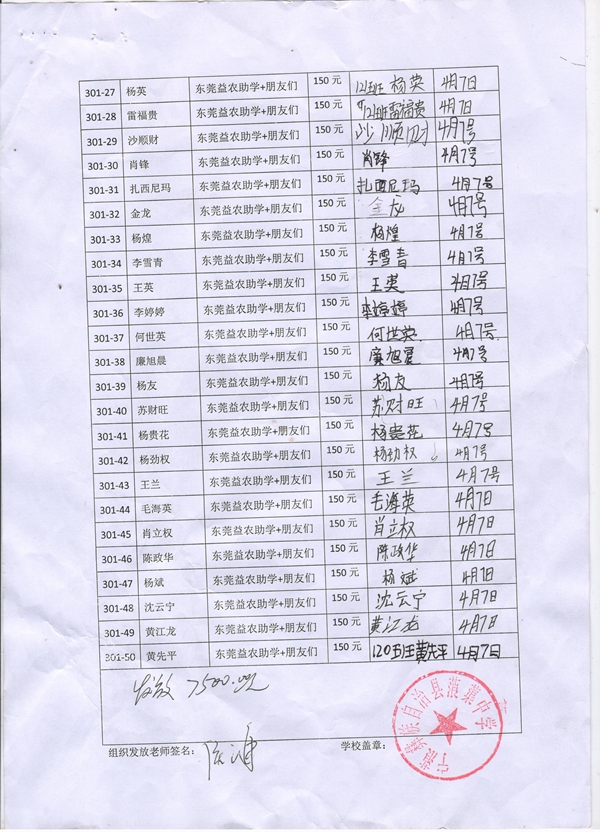 301-27 杨英 东莞益农助学+朋友们 150 元 121班 杨英 4月7日
301-28 雷福贵 东莞益农助学+朋友们 150 元 雷福贵 4月7日
301-29 沙顺财 东莞益农助学+朋友们 150 元 沙顺财 4月7号
301-30 肖锋 东莞益农助学+朋友们 150 元 肖锋 4月7号
301-31 扎西尼玛 东莞益农助学+朋友们 150 元 扎西尼玛 4月7号
301-32 金龙 东莞益农助学+朋友们 150 元 金龙 4月7号
301-33 杨煌 东莞益农助学+朋友们 150 元 杨煌 4月7号
301-34 李雪青 东莞益农助学+朋友们 150 元 李雪青 4月7号
301-35 王英 东莞益农助学+朋友们 150 元 王英 4月7号
301-36 李婷婷 东莞益农助学+朋友们 150 元 李婷婷 4月7号
301-37 何世英 东莞益农助学+朋友们 150 元 何世英 4月7号
301-38 廉旭晨 东莞益农助学+朋友们 150 元 4月7号
301-39 杨友 东莞益农助学+朋友们 150 元 杨友 4月7号
301-40 苏财旺 东莞益农助学+朋友们 150 元 苏财旺 4月7号
301-41 杨贵花 东莞益农助学+朋友们 150 元 杨贵花 4月7号
301-42 杨劲权 东莞益农助学+朋友们 150 元 杨劲权 4月7号
301-43 王兰 东莞益农助学+朋友们 150 元 王兰 4月7号
301-44 毛海英 东莞益农助学+朋友们 150 元 毛海英 4月7日
301-45 肖立权 东莞益农助学+朋友们 150 元 肖立权 4月7日
301-46 陈政华 东莞益农助学+朋友们 150 元 陈政华 4月7日
301-47 杨斌 东莞益农助学+朋友们 150 元 杨斌 4月7日
301-48 沈云宁 东莞益农助学+朋友们 150 元 沈云宁 4月7日
301-49 黄江龙 东莞益农助学+朋友们 150 元 黄江龙 4月7日
301-50 黄先平 东莞益农助学+朋友们 150 元 120五班黄先平 4月7日
发放 7500.00元
组织发放老师签名:
学校盖章:
宁蒗彝族自治县蒗蕖中学